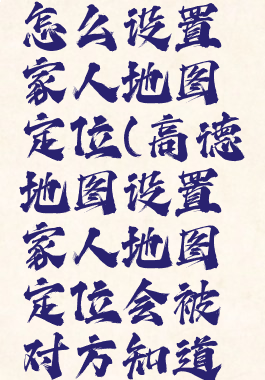 怎么设置
家人地图
定位(高德
地图设置
家人地图
定位会被
对方知道